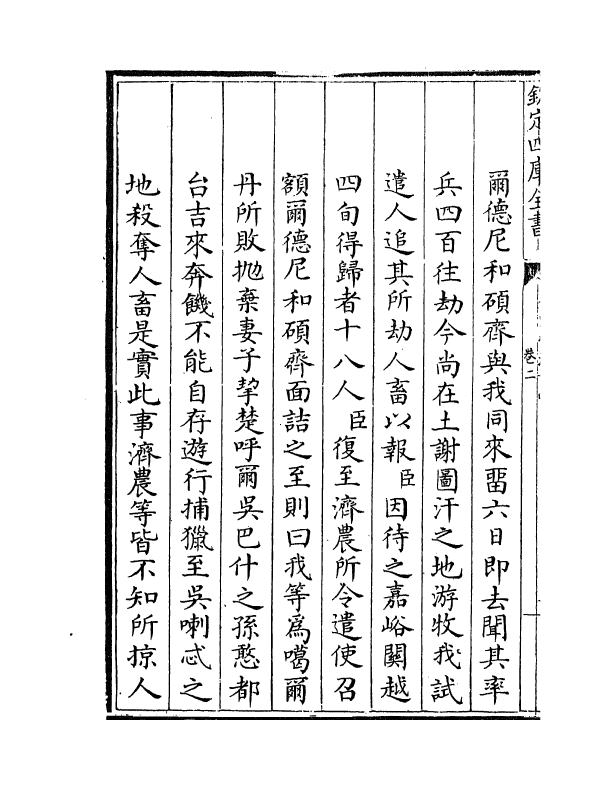 欽定四庫全書
卷二
爾德尼和碩齊與我同來畱六日即去聞其率
兵四百往劫今尚在土謝圖汗之地游牧我試
遣人追其所劫人畜以報臣因待之嘉峪關越
四旬得歸者十八人臣復至濟農所令遣使召
額爾德尼和碩齊面詰之至則曰我等為噶爾
丹所敗抛棄妻子挈楚呼爾吳巴什之孫憨都
台吉來奔饑不能自存游行捕獵至吳喇忒之
地殺奪人畜是實此事濟農等皆不知所掠人